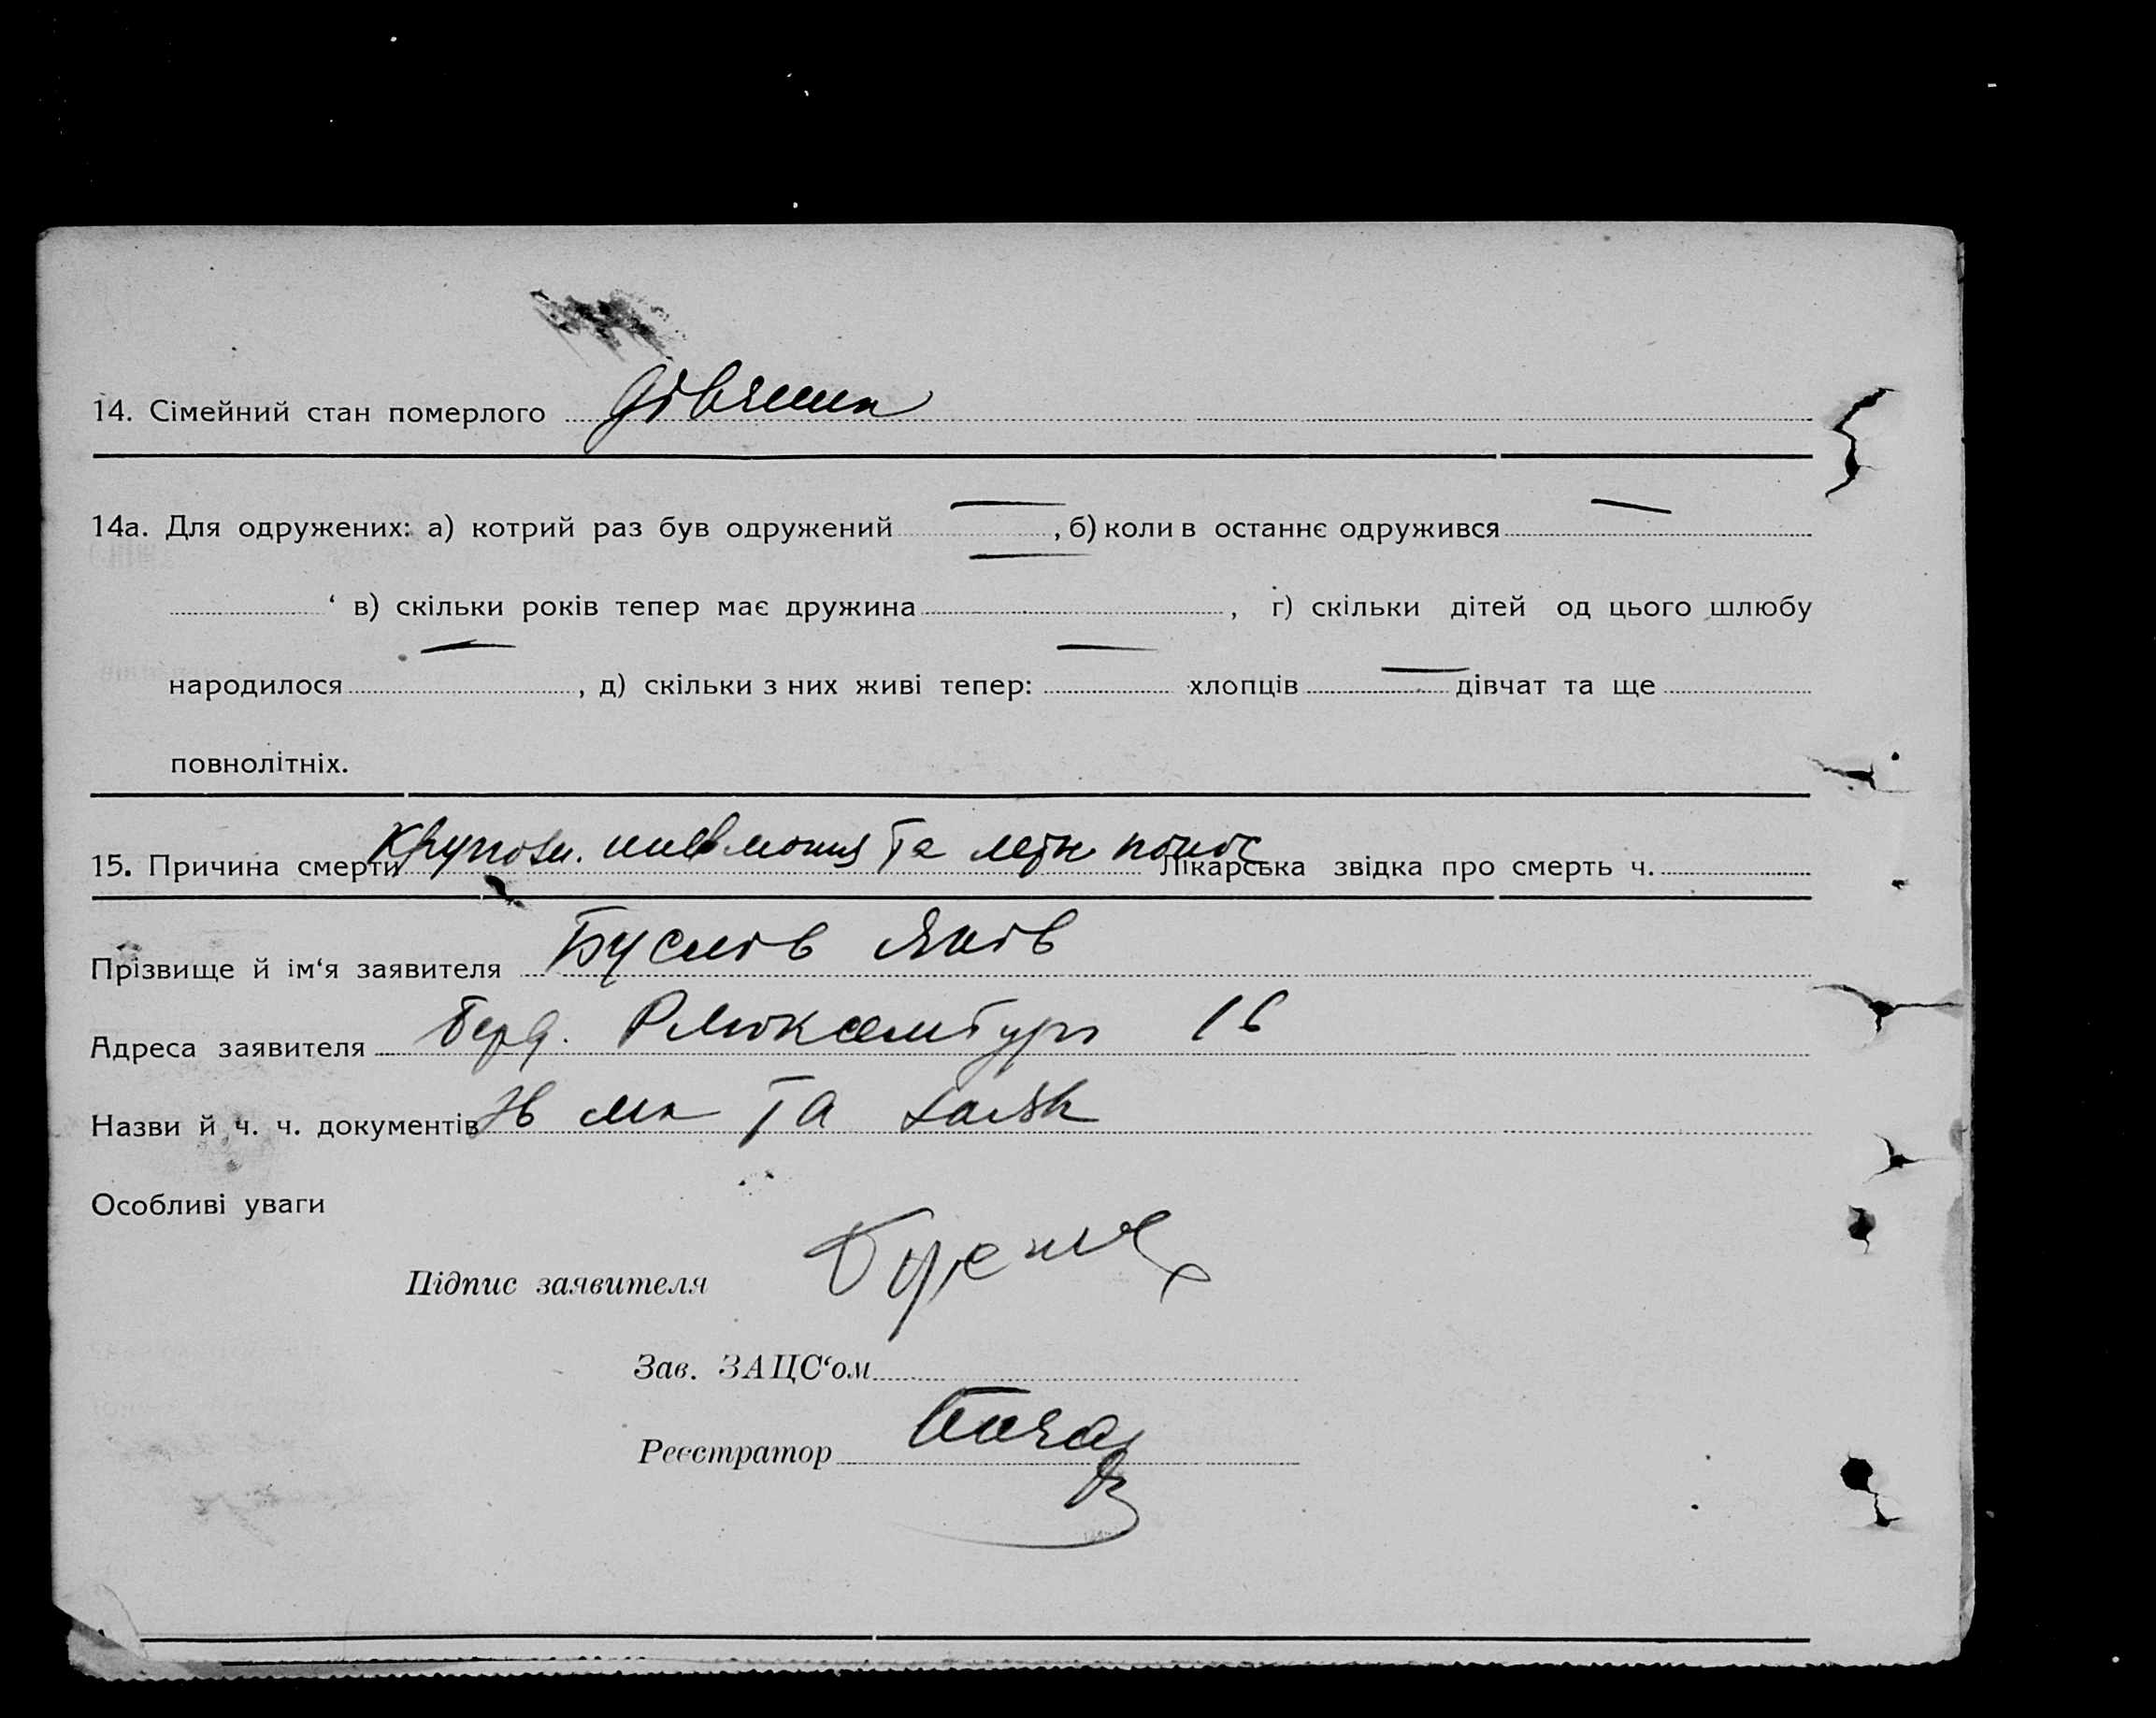 14. Сімейний стан померлого дівчина
14а. Для одружених: а) котрий раз був одружений — , б) коли в останнє одружився —
‘ в) скільки років тепер має дружина — , г) скільки дітей од цього шлюбу
народилося — , д) скільки з них живі тепер: — хлопців — дівчат та ще
повнолітніх.
15. Причина смерти Крупозн. пневмонія та Лікарська звідка про смерть ч.
Прізвище й ім‘я заявителя Буслів Яків
Адреса заявителя Берд. Р Люксембург 16
Назви й ч. ч. документів та
Особливі уваги
Підпис заявителя
Зав. ЗАЦС‘ом
Реєстратор